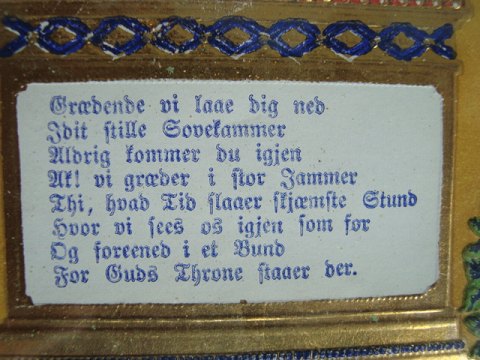 Grædende vi laae dig ned
Idit stille Sovekammer
Aldrig kommer du igjen
Ak! vi græder i stor Jammer
Thi, hvad Tid slaaer skjæmste Stund
Hvor vi sees os igjen som før
Og foreened i et Bund
For Guds Throne staaer der.